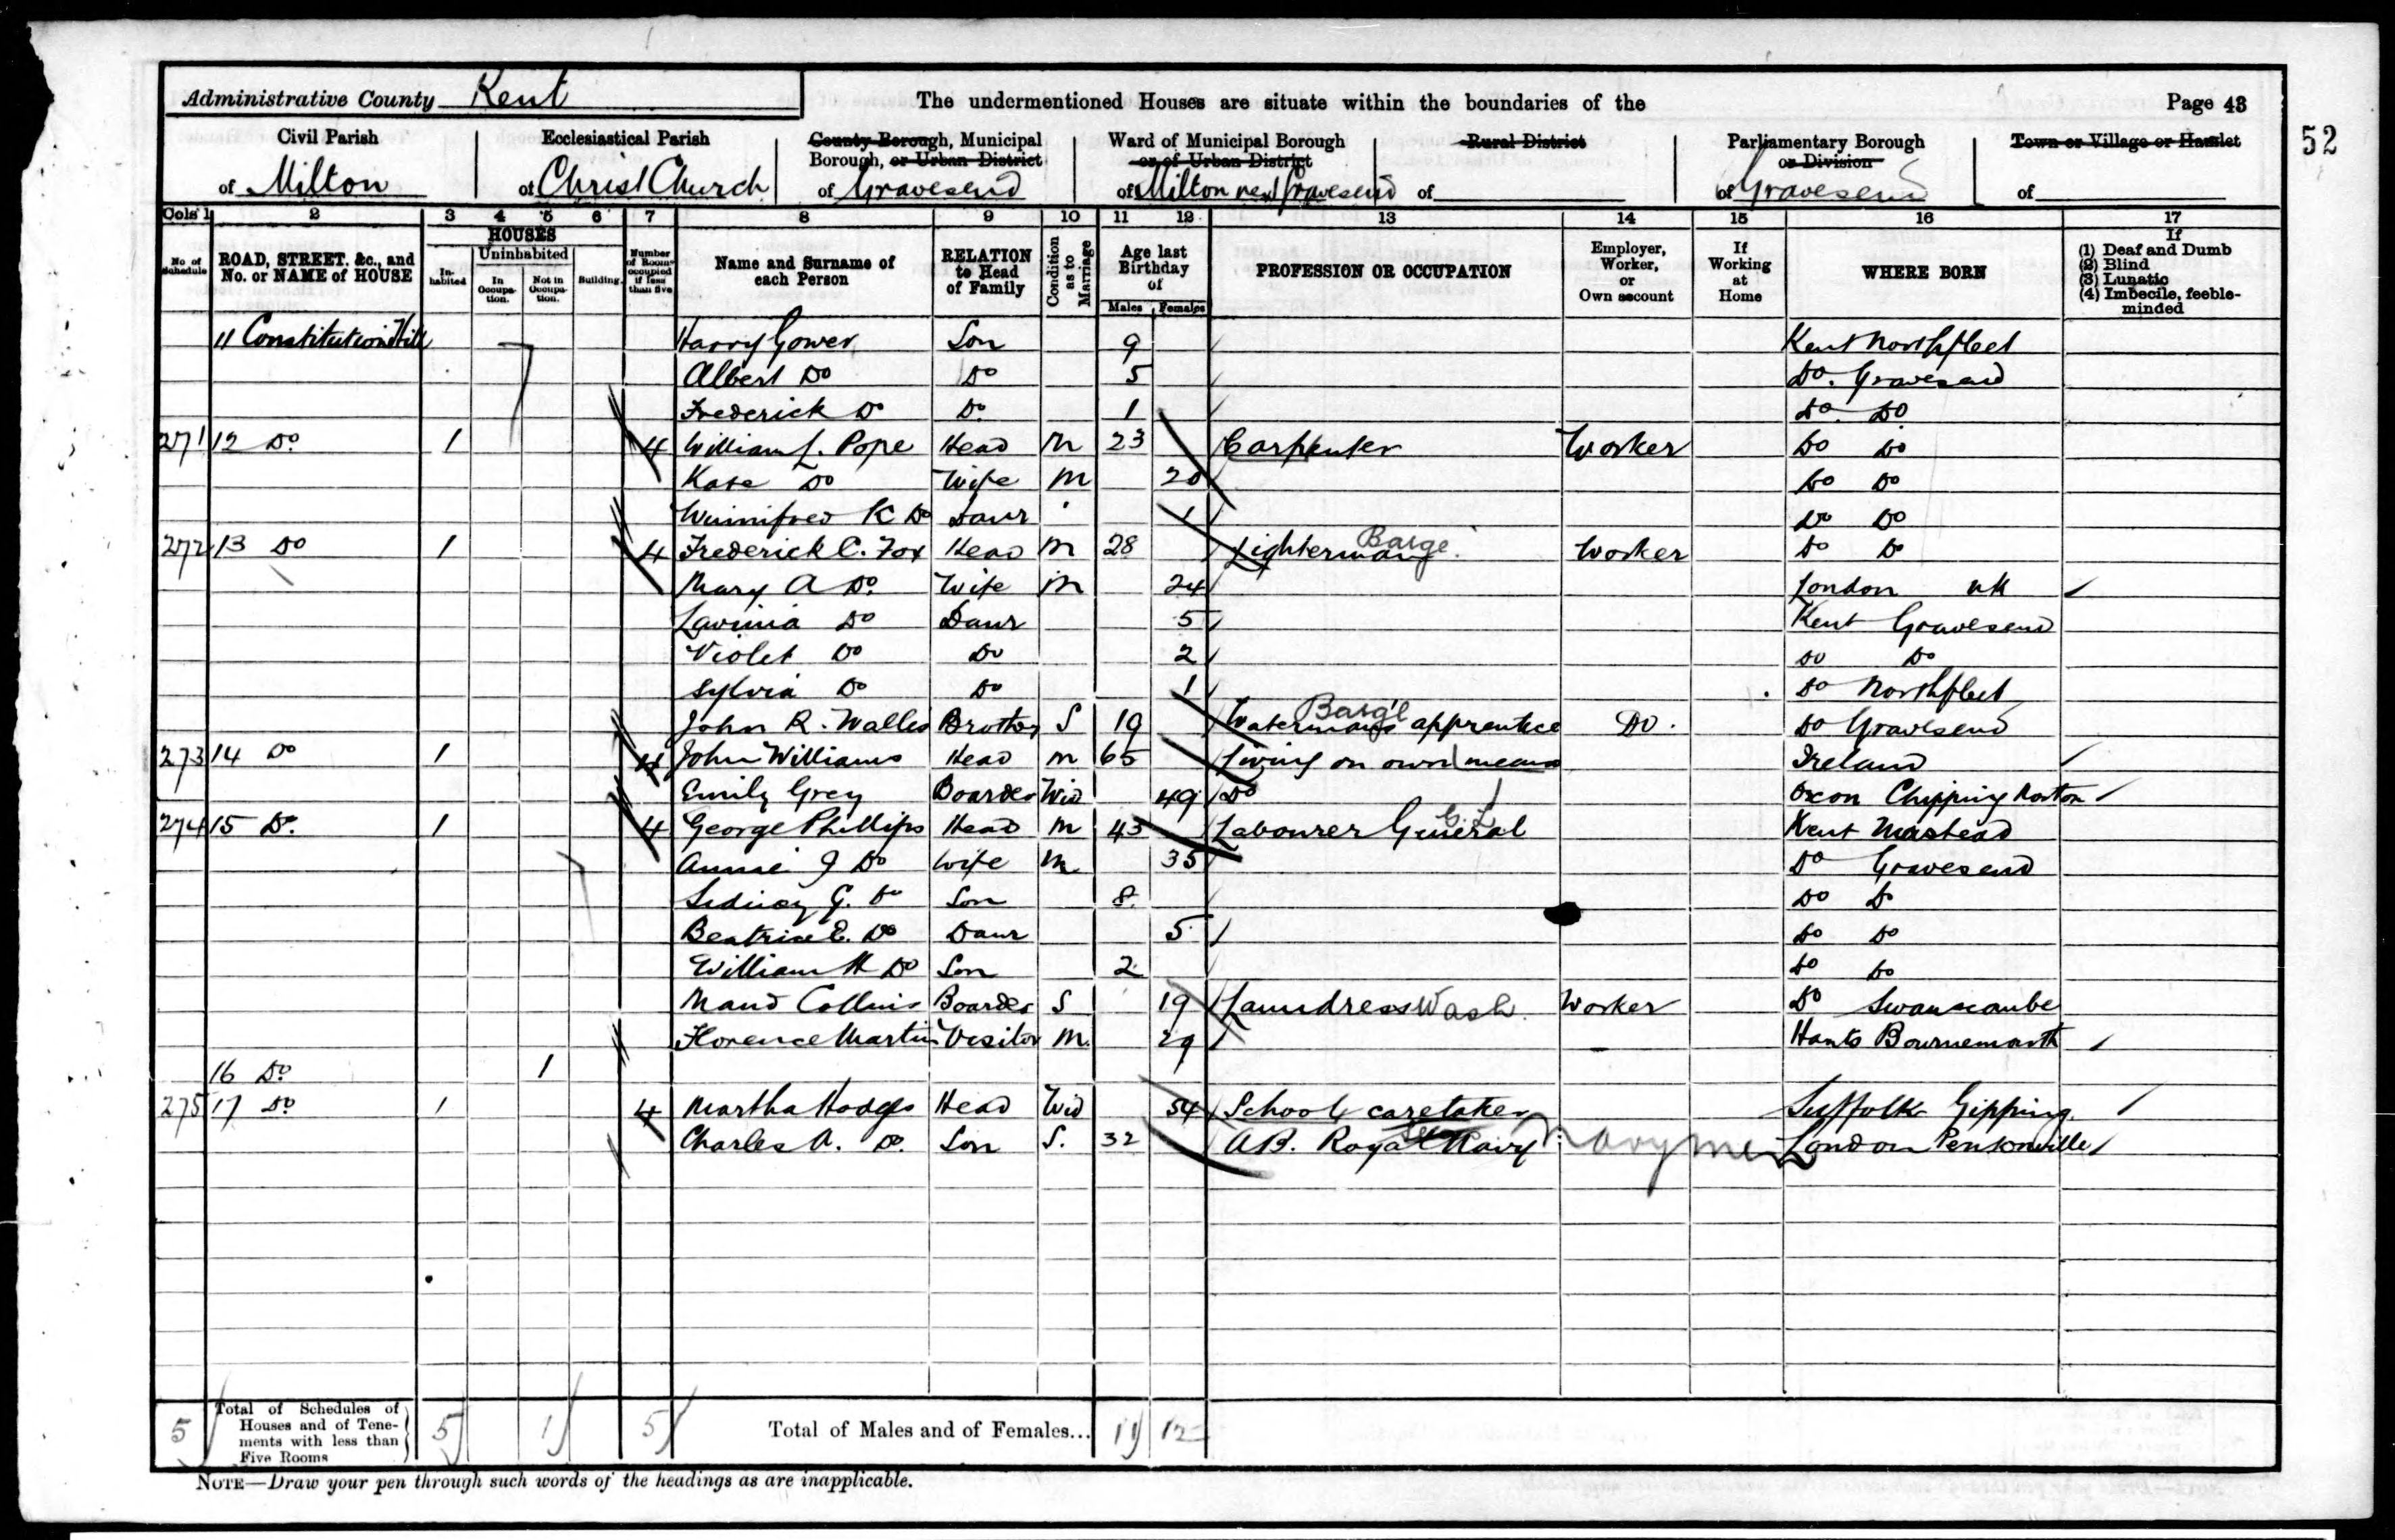 Administrative County Kent
The undermentioned Houses are situate within the boundaries of the
Page 43
52
Civil Parish of Milton
Ecclesiastical Parish of Christ Church
County Borough, Municipal Borough, or Urban District of Gravesend
Ward of Municipal Borough or of Urban District of Milton next Gravesend
Rural District of
Parliamentary Borough or Division of Gravesend
Town or Village or Hamlet of
Cols 1 2 3 4 5 6 7 8 9 10 11 12 13 14 15 16 17
No. of Schedule
ROAD, STREET, &c., and No. or NAME of HOUSE
HOUSES
Inhabited
Uninhabited
In Occupation.
Not in Occupation.
Building.
Number of Rooms occupied if less than five
Name and Surname of each Person
RELATION to Head of Family
Condition as to Marriage
Age last Birthday of
Males Females
PROFESSION OR OCCUPATION
Employer, Worker, or Own account
If Working at Home
WHERE BORN
If
(1) Deaf and Dumb
(2) Blind
(3) Lunatic
(4) Imbecile, feeble-minded
11 Constitution Hill Harry Gower Son 9 Kent Northfleet
Albert Do Do 5 Do. Gravesend
Frederick Do Do 1 Do Do
271 12 Do 1 4 William L. Pope Head M 23 Carpenter Worker Do Do
Kate Do Wife M 20 Do Do
Winnifred K Do Daur 1 Do Do
272 13 Do 1 4 Frederick C. Fox Head M 28 Lighterman Barge Worker Do Do
Mary A Do Wife M 24 London NK
Lavinia Do Daur 5 Kent Gravesend
Violet Do Do 2 Do Do
Sylvia Do Do 1 Do Northfleet
John R. Walles Brother S 19 Watermans Barge apprentice Do. Do Gravesend
273 14 Do 1 4 John Williams Head M 65 Living on own means Ireland
Emily Grey Boarder Wid 49 Do Oxon Chipping Norton
274 15 Do 1 4 George Phillips Head M 43 Labourer General G.L Kent
Annie J Do Wife M 35 Do Gravesend
Sidney G. Do Son 8 Do Do
Beatrice E. Do Daur 5 Do Do
William H Do Son 2 Do Do
Maud Collins Boarder S 19 Laundress Wash Worker Do Swanscombe
Florence Martin Visitor M 29 Hants Bournemouth
16 Do 1
275 17 Do 1 4 Martha Hodges Head Wid 54 School caretaker Suffolk Gipping
Charles A. Do. Son S. 32 A.B. Royal Navy Navy men London Pentonville
5 Total of Schedules of Houses and of Tenements with less than Five Rooms 5 1 5 Total of Males and of Females... 11 12
NOTE—Draw your pen through such words of the headings as are inapplicable.